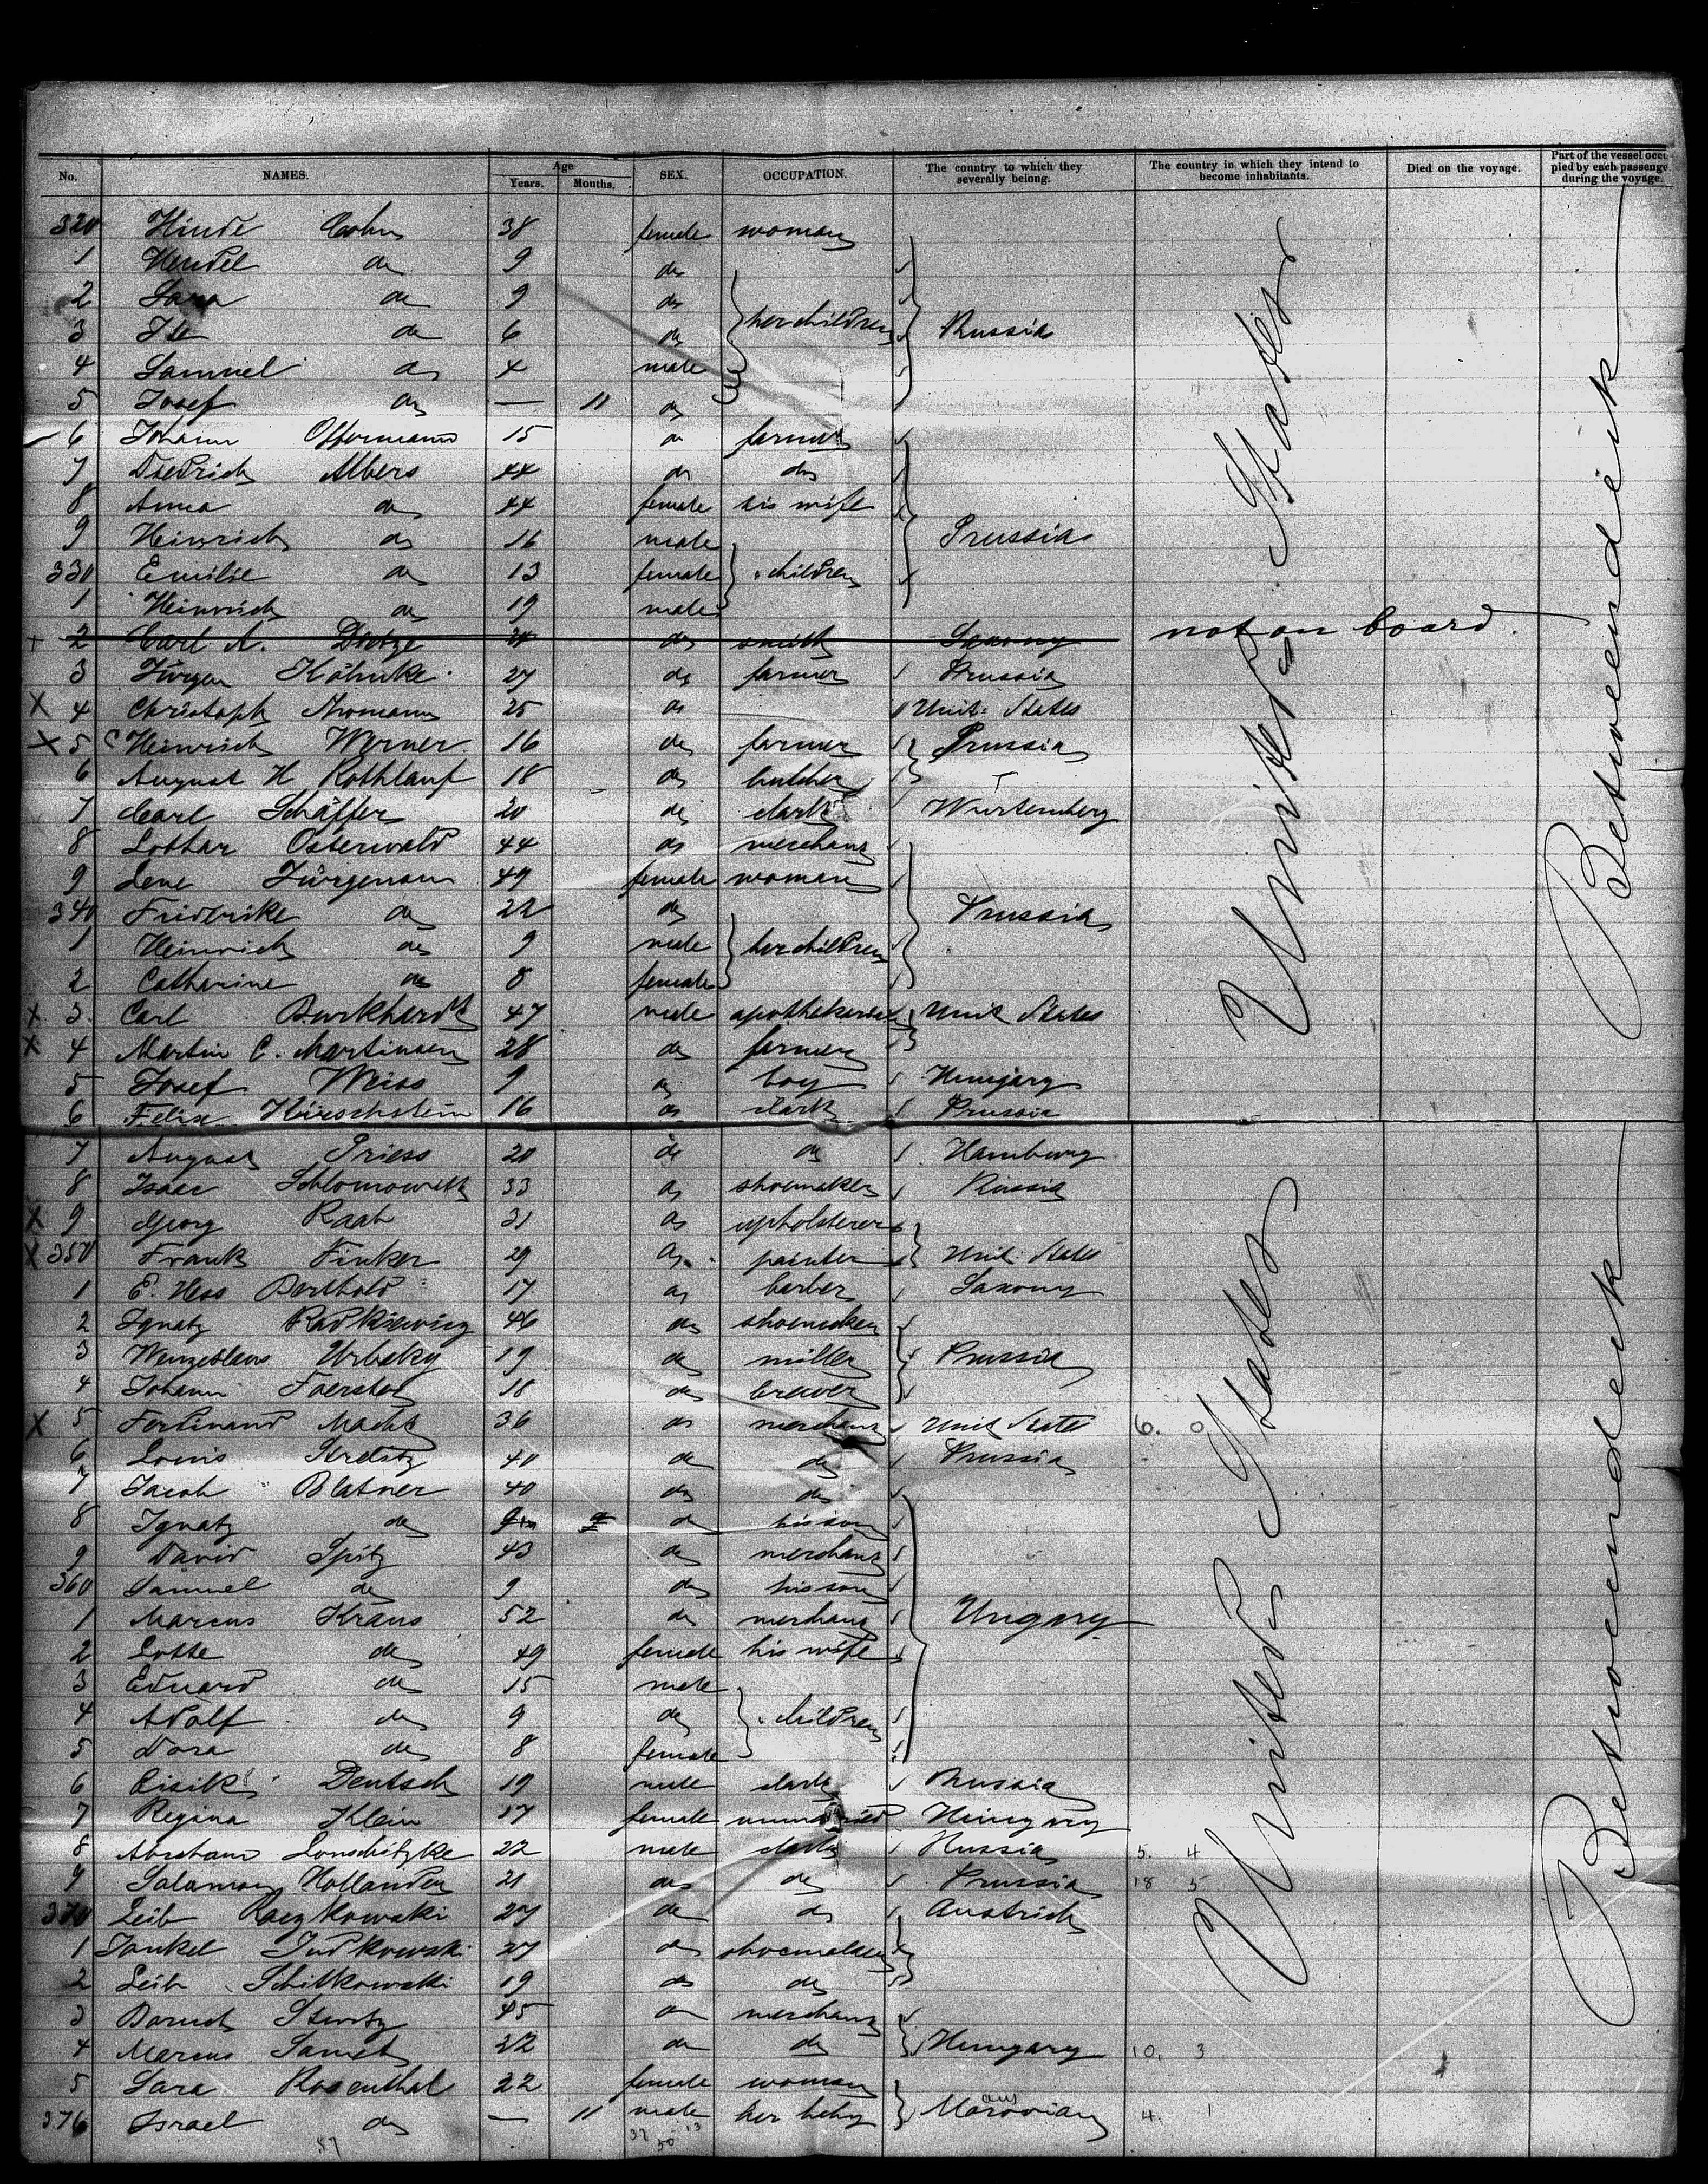 No. NAMES. Age Years. Months. SEX. OCCUPATION. The country to which they severally belong. The country in which they intend to become inhabitants. Died on the voyage. Part of the vessel occu pied by each passenge during the voyage.
320 Hinde Cohn 38 female woman
1 Hendel do 9 do
2 Sara do 9 do
3 Ite do 6 do her children Russia
4 Samuel do 4 male
5 Josef do — 11 do
6 Johann Offermann 15 do farmer
7 Diedrich Albers 44 do do
8 Anna do 44 female his wife
9 Heinrich do 16 male Prussia
330 Emilie do 13 female " children
1 Heinrich do 19 male
+ 2 Carl A. Dietze do smith Saxony not on board.
3 Jürgen Köhnke 27 do farmer Prussia
X 4 Christoph 25 do Unit: States
X 5 Heinrich Werner 16 do farmer Prussia
6 August H Rothlauf 18 do butcher
7 Carl Schäffer 20 do clark Wurtemberg
8 Lothar Osterwald 44 do merchant
9 Lene Jürgensen 49 female woman
340 Fridrike do 22 do Prussia
1 Heinrich do 9 male her children
2 Catharine do 8 female
X 3. Carl Burkhardt 47 male apotheker Unit States
X 4 Martin C. Martinsen 28 do farmer
5 Josef Weiss 9 do boy Hungary
6 Felix Hirschstein 16 do clark Prussia
7 August Priess 20 do do Hamburg
8 Isaac Schlomowitz 33 do shoemaker Russia
X 9 Georg Raab 31 do upholsterer
X 350 Frank Finker 29 do painter Unit: States
1 E. Hess Berthold 17 do barber Saxony
2 Ignatz Radkiewicz 46 do shoemaker
3 Wenzeslaus Urbsky 19 do miller Prussia
4 Johann Foerster 18 do brewer
X 5 Ferdinand Macht 36 do merchant Unit States 6. 0
6 Louis Strelitz 40 do do Prussia
7 Jacob Blatner 40 do do
8 Ignatz do do his son
9 David Spitz 43 do merchant
360 Samuel do 9 do his son
1 Marcus Kraus 52 do merchant Ungary
2 Lotte do 49 female his wife
3 Eduard do 15 male
4 Adolf do 9 do " children
5 Dora do 8 female
6 Eisik Deutsch 19 male clark Russia
7 Regina Klein 17 female unmarried Hungary
8 Abraham Lonschitzke 22 male clark Russia 5. 4
9 Salamon Hollander 21 do do Prussia 18 5
370 Leib Raczkowski 27 do do Austrich
1 Jankel Judkowski 27 do shoemaker
2 Leib Schilkowski 19 do do
3 Baruch Steritz 45 do merchant
4 Marcus Samet 22 do do Hungary 10. 3
5 Sara Rosenthal 22 female woman
376 Israel do — 11 male her baby Moravian 4. 1
57 37 50 13
United States
Betweendeck
United States
Betweendeck